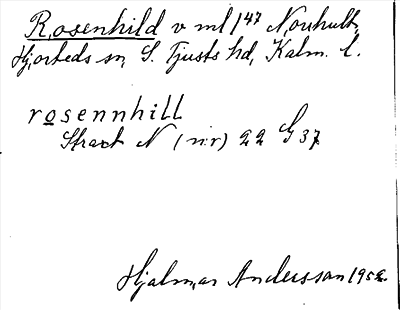 Rosenhild v ml 1⁴⁷ Norhult,
Hjorteds sn, S. Tjusts hd, Kalm. l.
rosennhill
Strax t N (nr) 22 G 37
Hjalmar Andersson 1952.